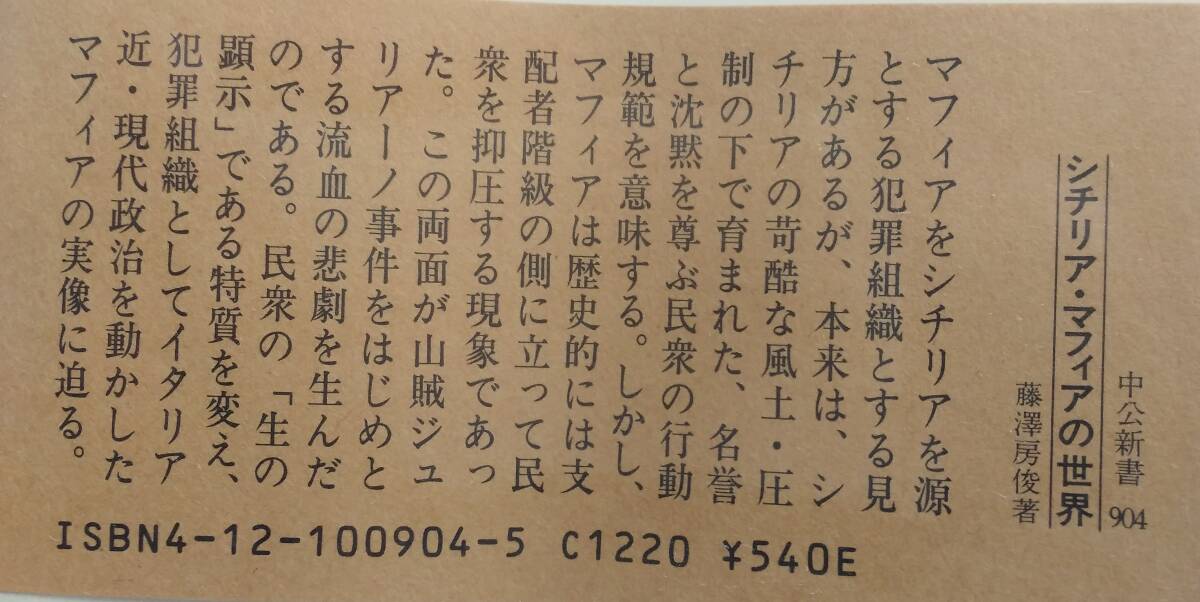 中公新書 904
シチリア・マフィアの世界
藤澤房俊著
マフィアをシチリアを源
とする犯罪組織とする見
方があるが、本来は、シ
チリアの苛酷な風土・圧
制の下で育まれた、名誉
と沈黙を尊ぶ民衆の行動
規範を意味する。しかし、
マフィアは歴史的には支
配者階級の側に立って民
衆を抑圧する現象であっ
た。この両面が山賊ジュ
リアーノ事件をはじめと
する流血の悲劇を生んだ
のである。民衆の「生の
顕示」である特質を変え、
犯罪組織としてイタリア
近・現代政治を動かした
マフィアの実像に迫る。
ISBN4-12-100904-5 C1220 ¥540E